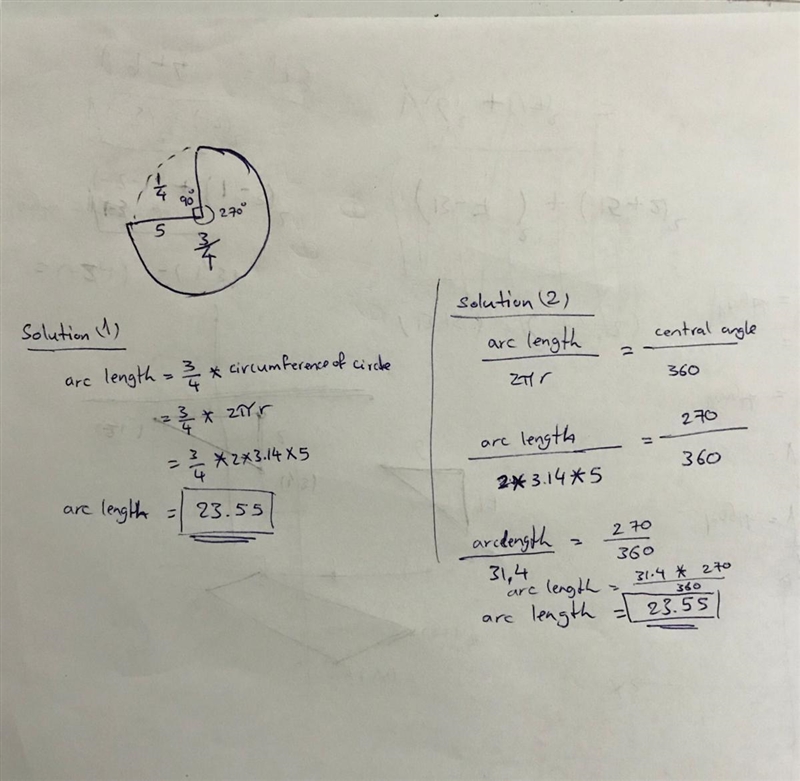 1/4
90°
270°
5
3/4
Solution (1)
arc length = 3/4 * circumference of circle
= 3/4 * 2πr
= 3/4 * 2 * 3.14 * 5
arc length = 23.55
Solution (2)
arc length / 2πr = central angle / 360
arc length / 2 * 3.14 * 5 = 270 / 360
arc length / 31,4 = 270 / 360
arc length = 31.4 * 270 / 360
arc length = 23.55